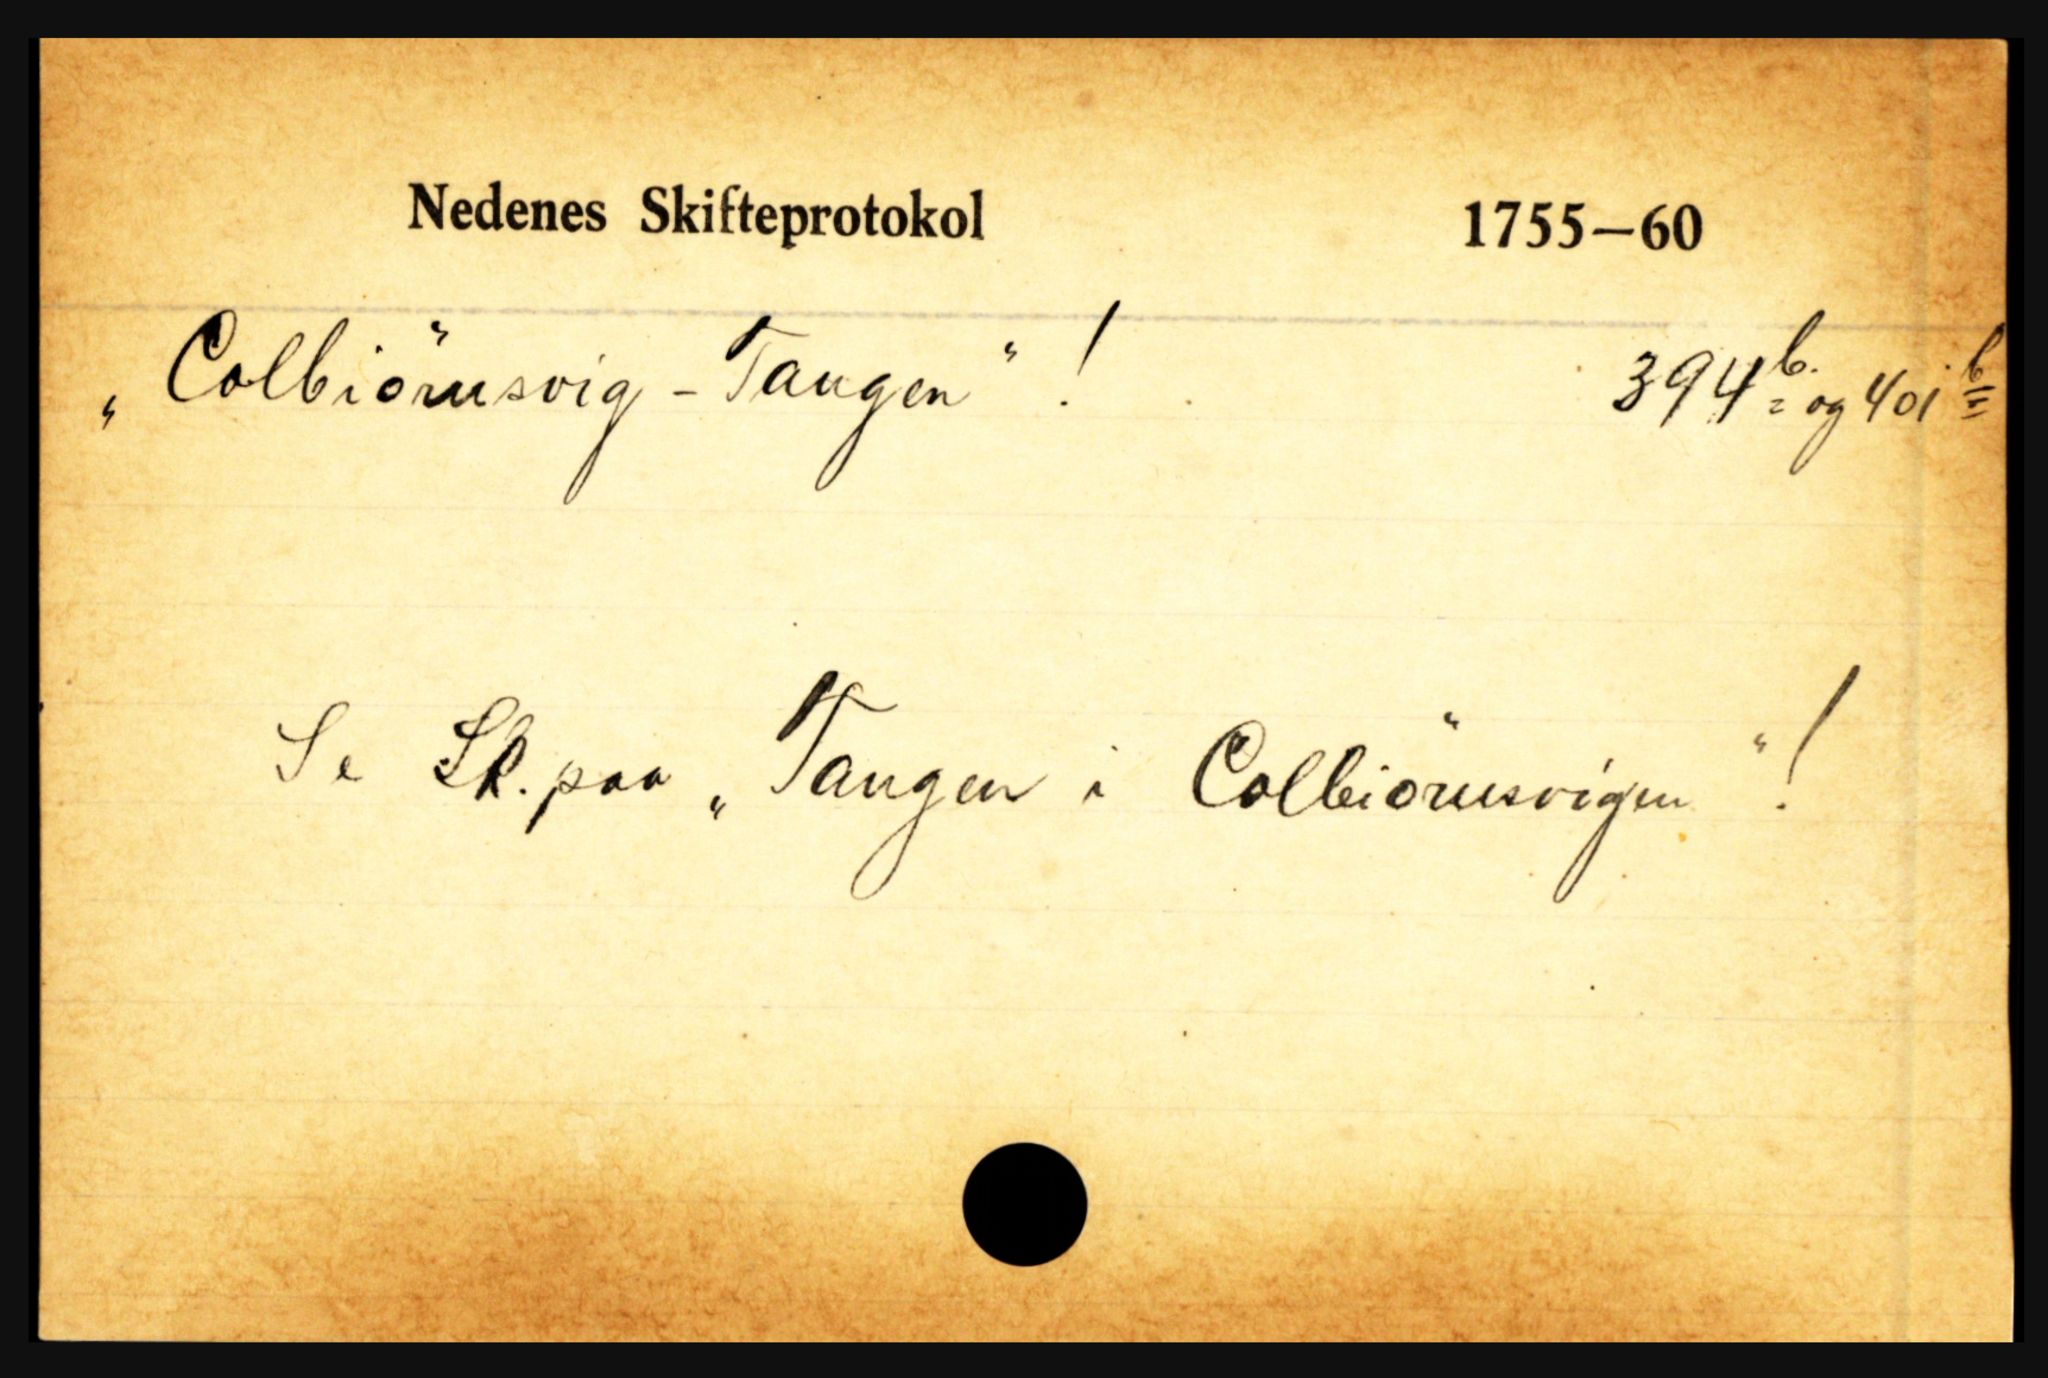 Nedenes Skifteprotokol 1755—60
„Colbiörnsvig-Tangen“! 394b. og 401b
Se Sk. paa „Tangen i Colbiörnsvigen“!